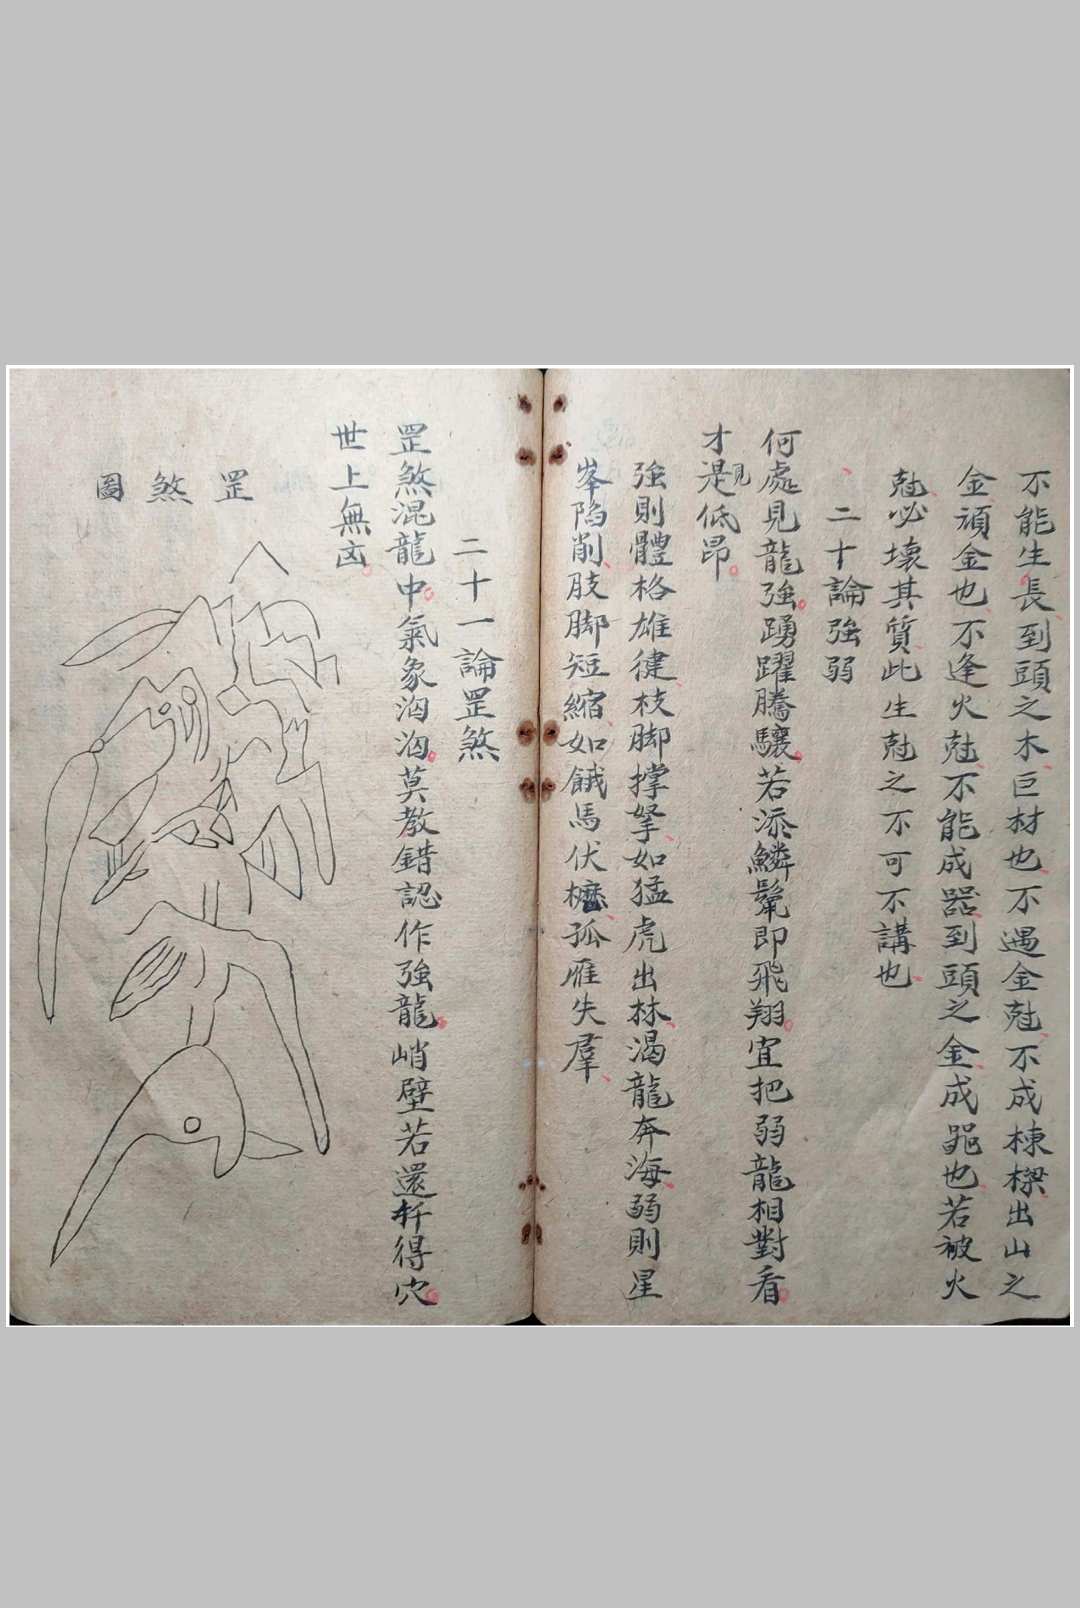 不能生長到頭之木巨材也不遇金尅不成棟樑出山之
金頑金也不逢火尅不能成器到頭之金成器也若被火
尅必壞其質此生尅之不可不講也
二十論強弱
何處見龍強踴躍騰驤若添鱗鬣即飛翔宜把弱龍相對看
才是見低昂
強則體格雄健枝脚撑拏如猛虎出林渴龍奔海弱則星
峯陷削肢脚短縮如餓馬伏櫪孤雁失羣
二十一論罡煞
罡煞混龍中氣象洶洶莫教錯認作強龍峭壁若還扦得穴
世上無凶
罡煞圖